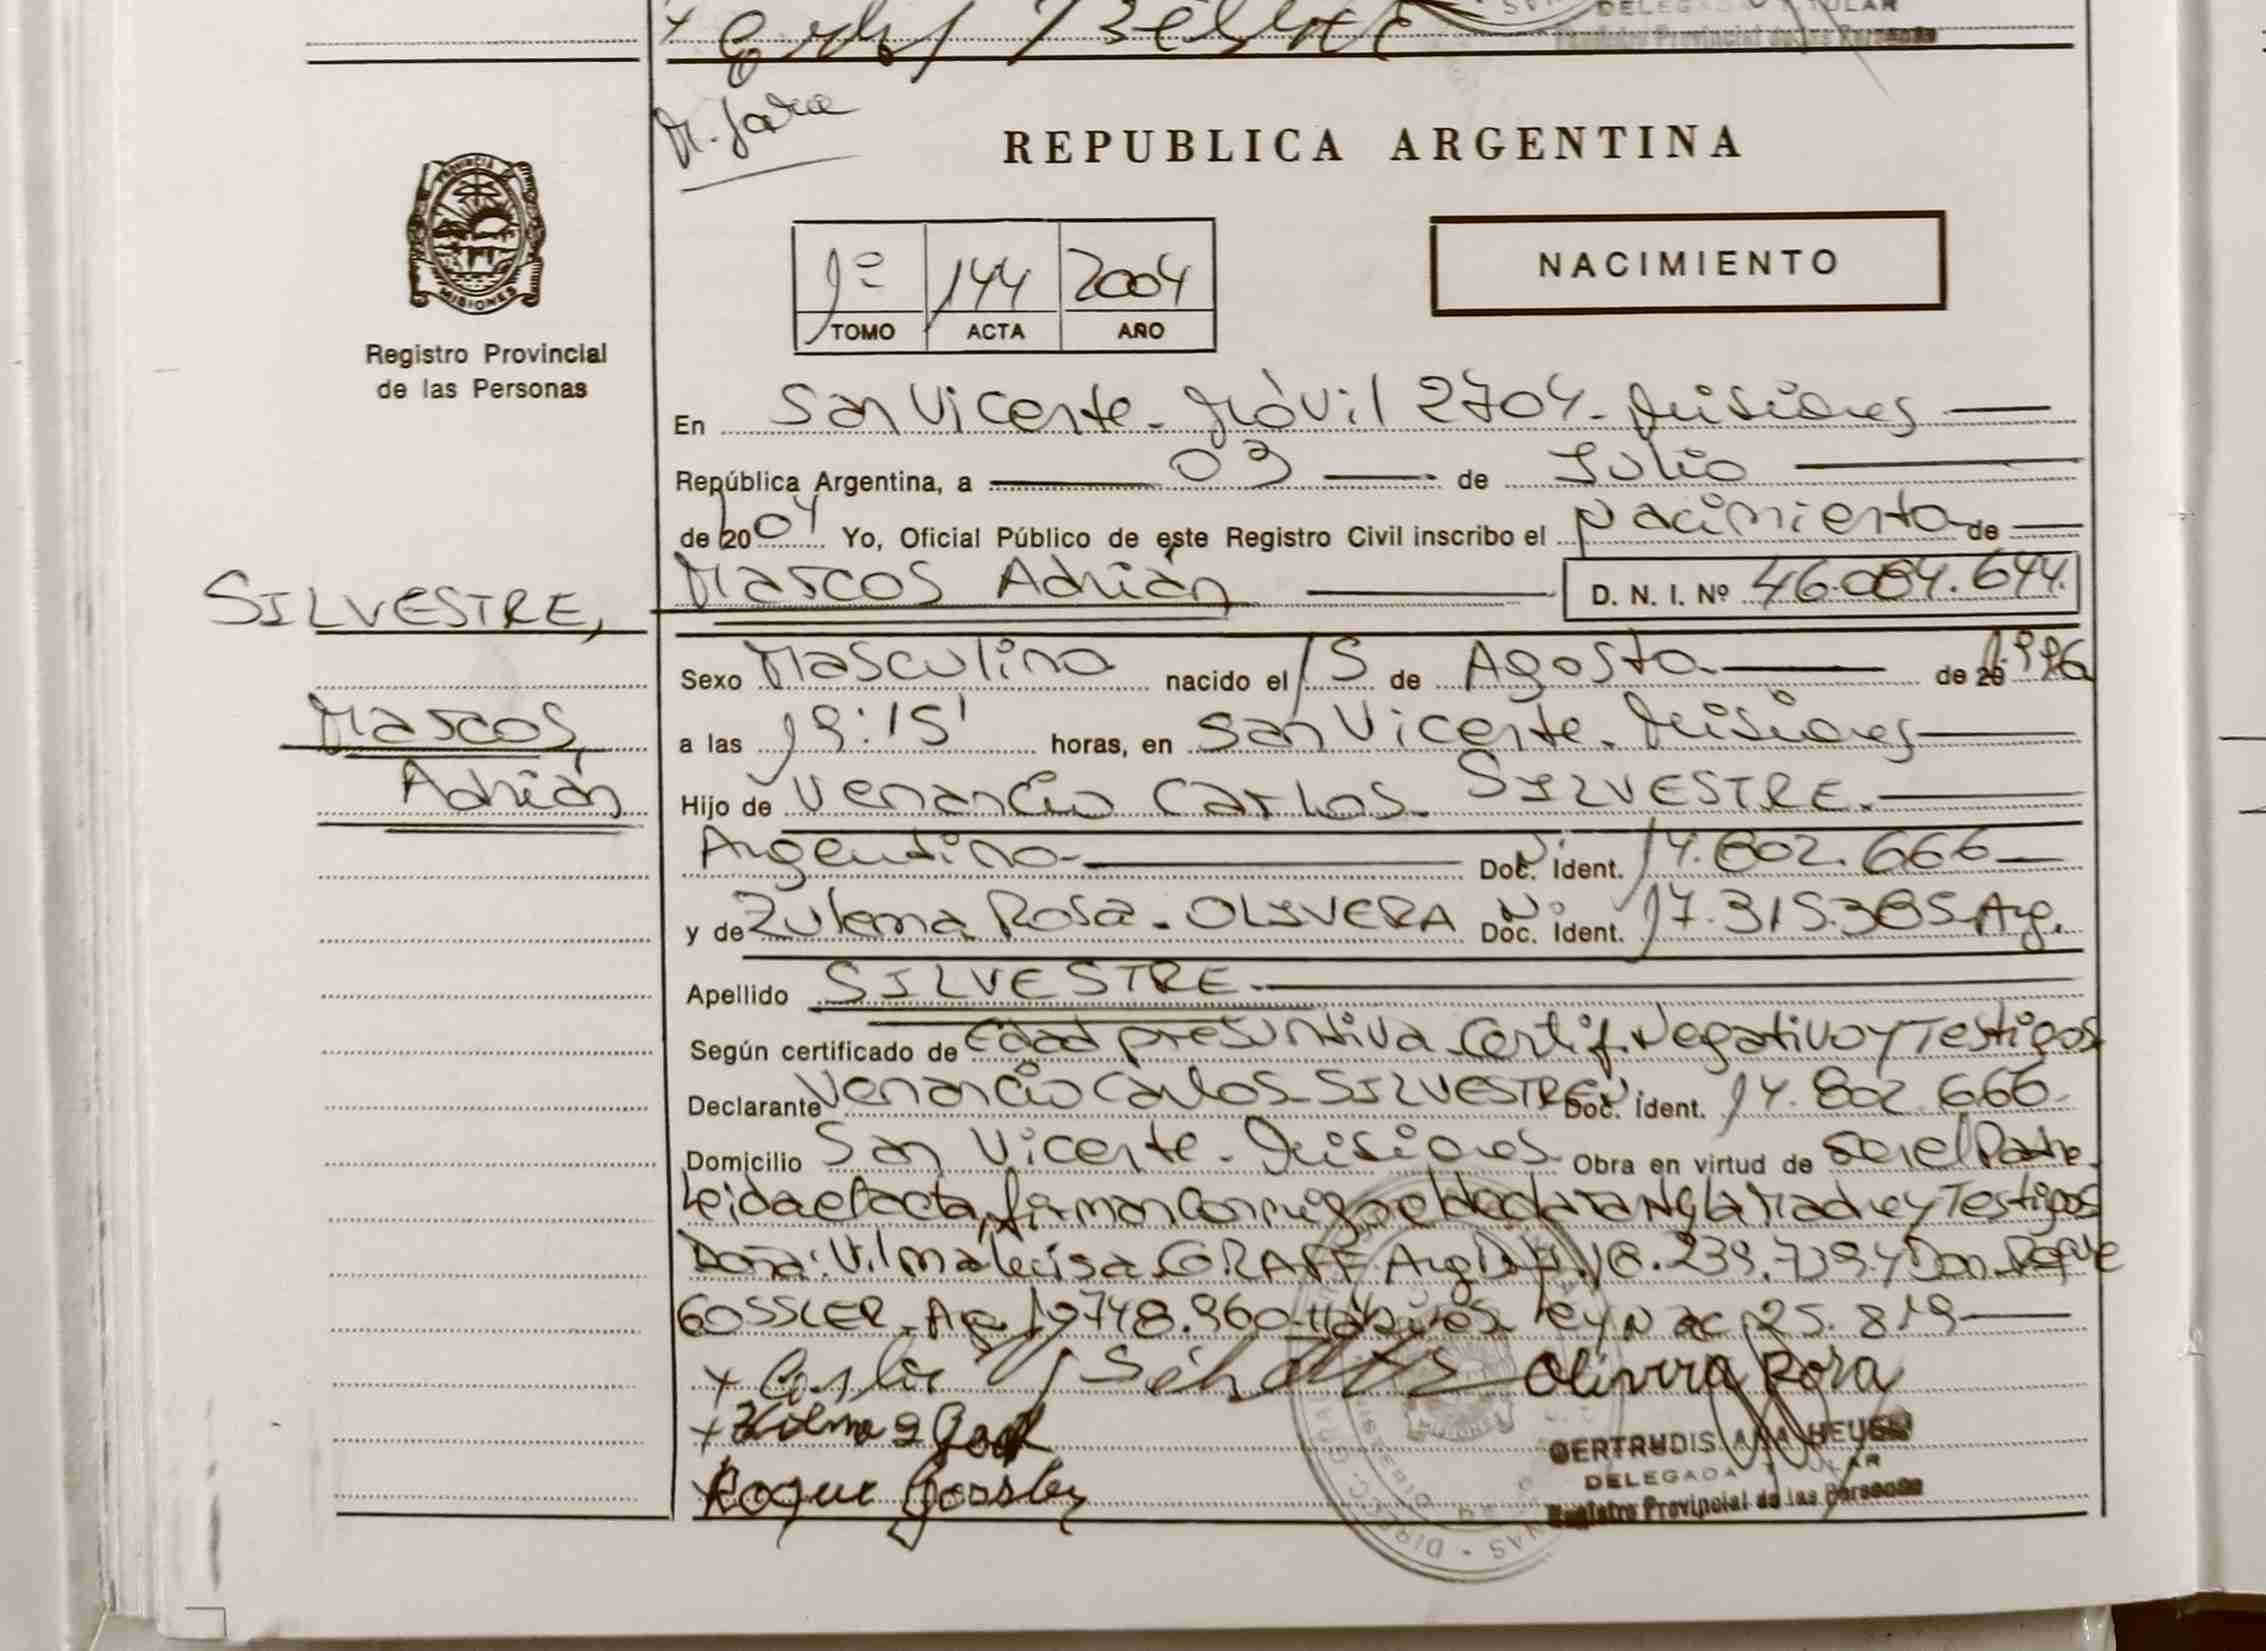 DELEGADA TITULAR
Registro Provincial de las Personas
PROVINCIA
MISIONES
Registro Provincial
de las Personas
REPUBLICA ARGENTINA
NACIMIENTO
1º 144 2004
TOMO ACTA AÑO
En San Vicente - Móvil 2704 - Misiones
República Argentina, a 03 de Julio
de 2004 Yo, Oficial Público de este Registro Civil inscribo el Nacimiento de
SILVESTRE, Marcos Adrián D. N. I. Nº 46.084.644.
Marcos,
Adrián
Sexo Masculino nacido el 15 de Agosto de 1996
a las 19:15' horas, en San Vicente - Misiones
Hijo de Venancio Carlos SILVESTRE.
Argentino - Doc. Ident. 14.802.666
y de Zulema Rosa - OLIVERA Doc. Ident. 17.315.385 Arg.
Apellido SILVESTRE.
Según certificado de Edad presuntiva Certif. Negativo y Testigos
Declarante Venancio Carlos SILVESTRE Doc. Ident. 14.802.666.
Domicilio San Vicente - Misiones Obra en virtud de ser el Padre.
Leida el acta, firman conmigo el declarante, la Madre y Testigos
Doña: Vilma GRAFF Arg. 16.239.739 y Don Roque
GOSSLER Arg. 19748.960 Ley Nac 25.819
Olivera Rosa
Roque Gossler
GERTRUDIS ANA
DELEGADA TITULAR
Registro Provincial de las Personas